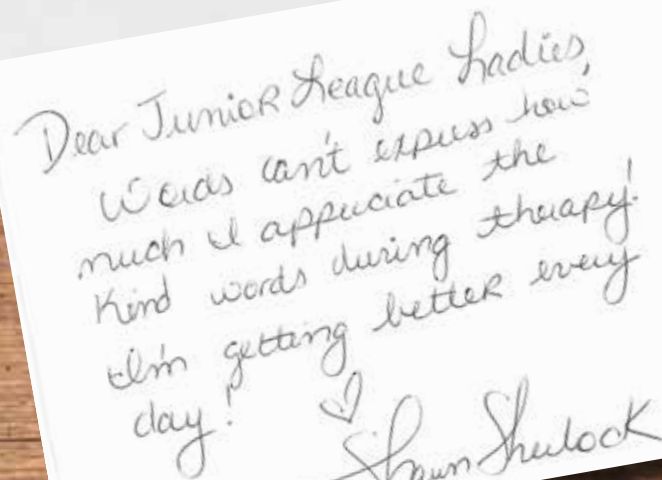 Dear Junior League Ladies,
Words can't express how
much I appreciate the
kind words during therapy!
I'm getting better every
day! ♡
Shawn Sherlock